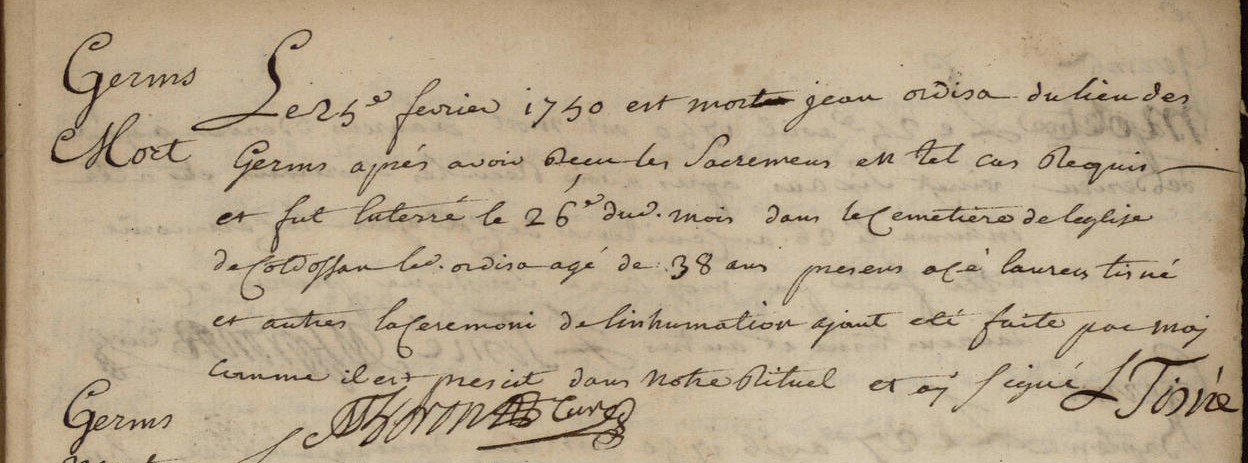 Germs
Mort
Le 25e fevrier 1750 est mort jean ordisa du lieu des
Germs aprés avoir Reçeu les Sacremens en tel cas Requis
et fut enterré le 26e dud. mois dans le Cemetière de leglise
de led. ordisa agé de 38 ans presens a cé laurens tisné
et autres la Ceremoni de linhumation ajant eté faite par moj
comme il est prescit dans notre Rituel et aj signé L Tisné
Curé
Germs